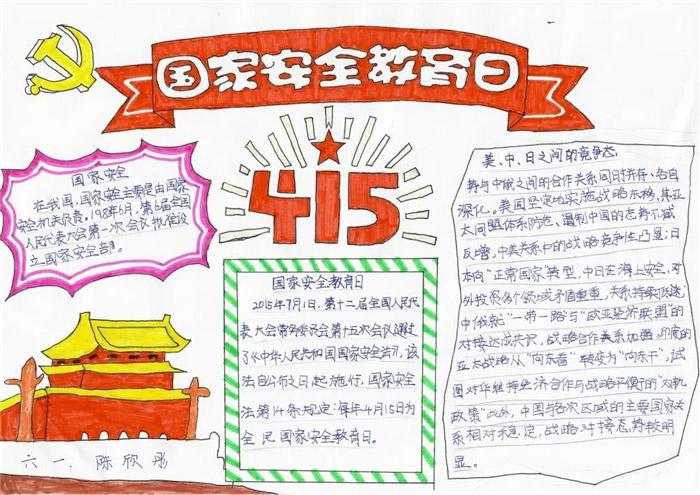 国家安全教育日
415
国家安全
在我国,国家安全主要是由国家
安全机关负责。1983年6月,第6届全国
人民代表大会第一次会议批准设
立国家安全部。
国家安全教育日
2015年7月1日,第十二届全国人民代
表大会常务委员会第十五次会议通过
了《中华人民共和国国家安全法》,该
法自公布之日起施行,国家安全
法第14条规定:每年4月15日为
全民国家安全教育日。
美、中、日之间的竞争态
势与中俄之间的合作关系同时并存、各自
深化。美国坚定地实施战略东移,其亚
太同盟体系防范、遏制中国的态势不减
反增,中美关系中的战略竞争性凸显;日
本向“正常国家”转型,中日在海上安全、对
外投资各个领域矛盾重重,关系持续低迷;
中俄就“一带一路”与“欧亚经济联盟”的
对接达成共识,战略合作关系加强。印度的
亚太战略从“向东看”转变为“向东干”,试
图对华维持经济合作与战略平衡的“对轨
政策”此外,中国与各次区域的主要国家关
系相对稳定,战略对接态势较明
显。
六一.陈欣彤